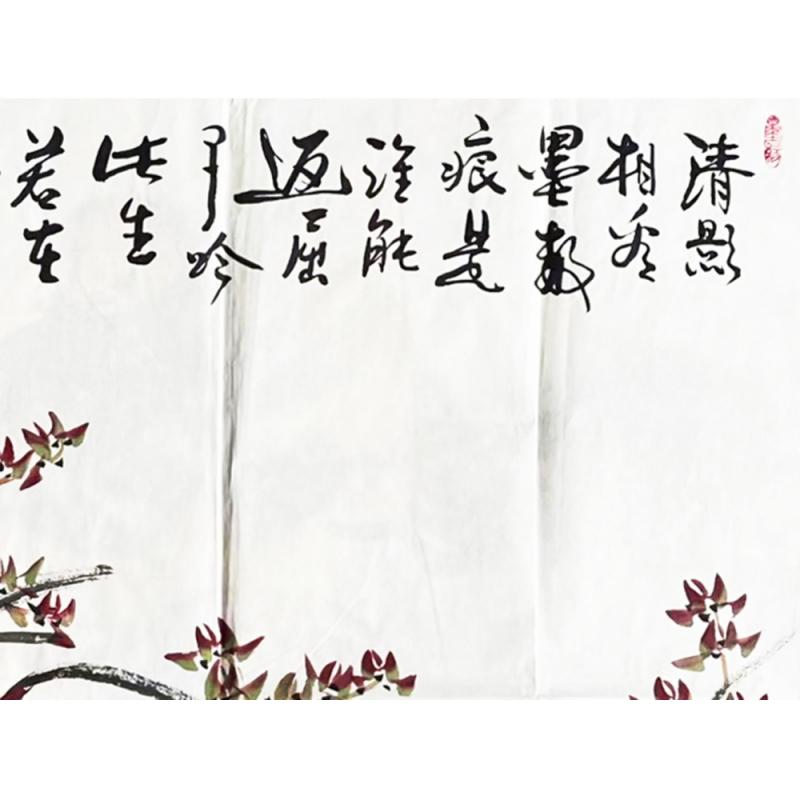 清影
相看
墨数
痕是
谁能
返屈
子吟
此生
若在